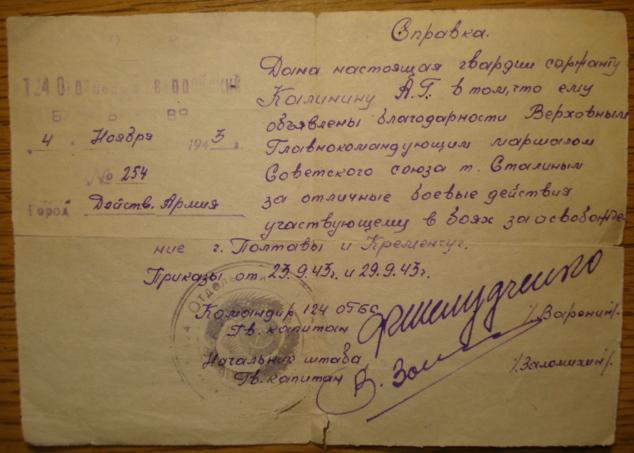 Справка.
Дана настоящая гвардии сержанту
Калинину А.Г. в том, что ему
объявлены благодарности Верховным
Главнокомандующим маршалом
Советского союза т. Сталиным
за отличные боевые действия
участвующему в боях за освобожде
ние г. Полтавы и Кременчуг.
Приказы от 23.9.43г. и 29.9.43г.
124
"4" Ноября 1943 г.
№ 254
Город Действ. Армия
Командир 124 ОТБС
Гв. капитан /Варенин/.
Начальник штаба
Гв. капитан /Заломихин/.